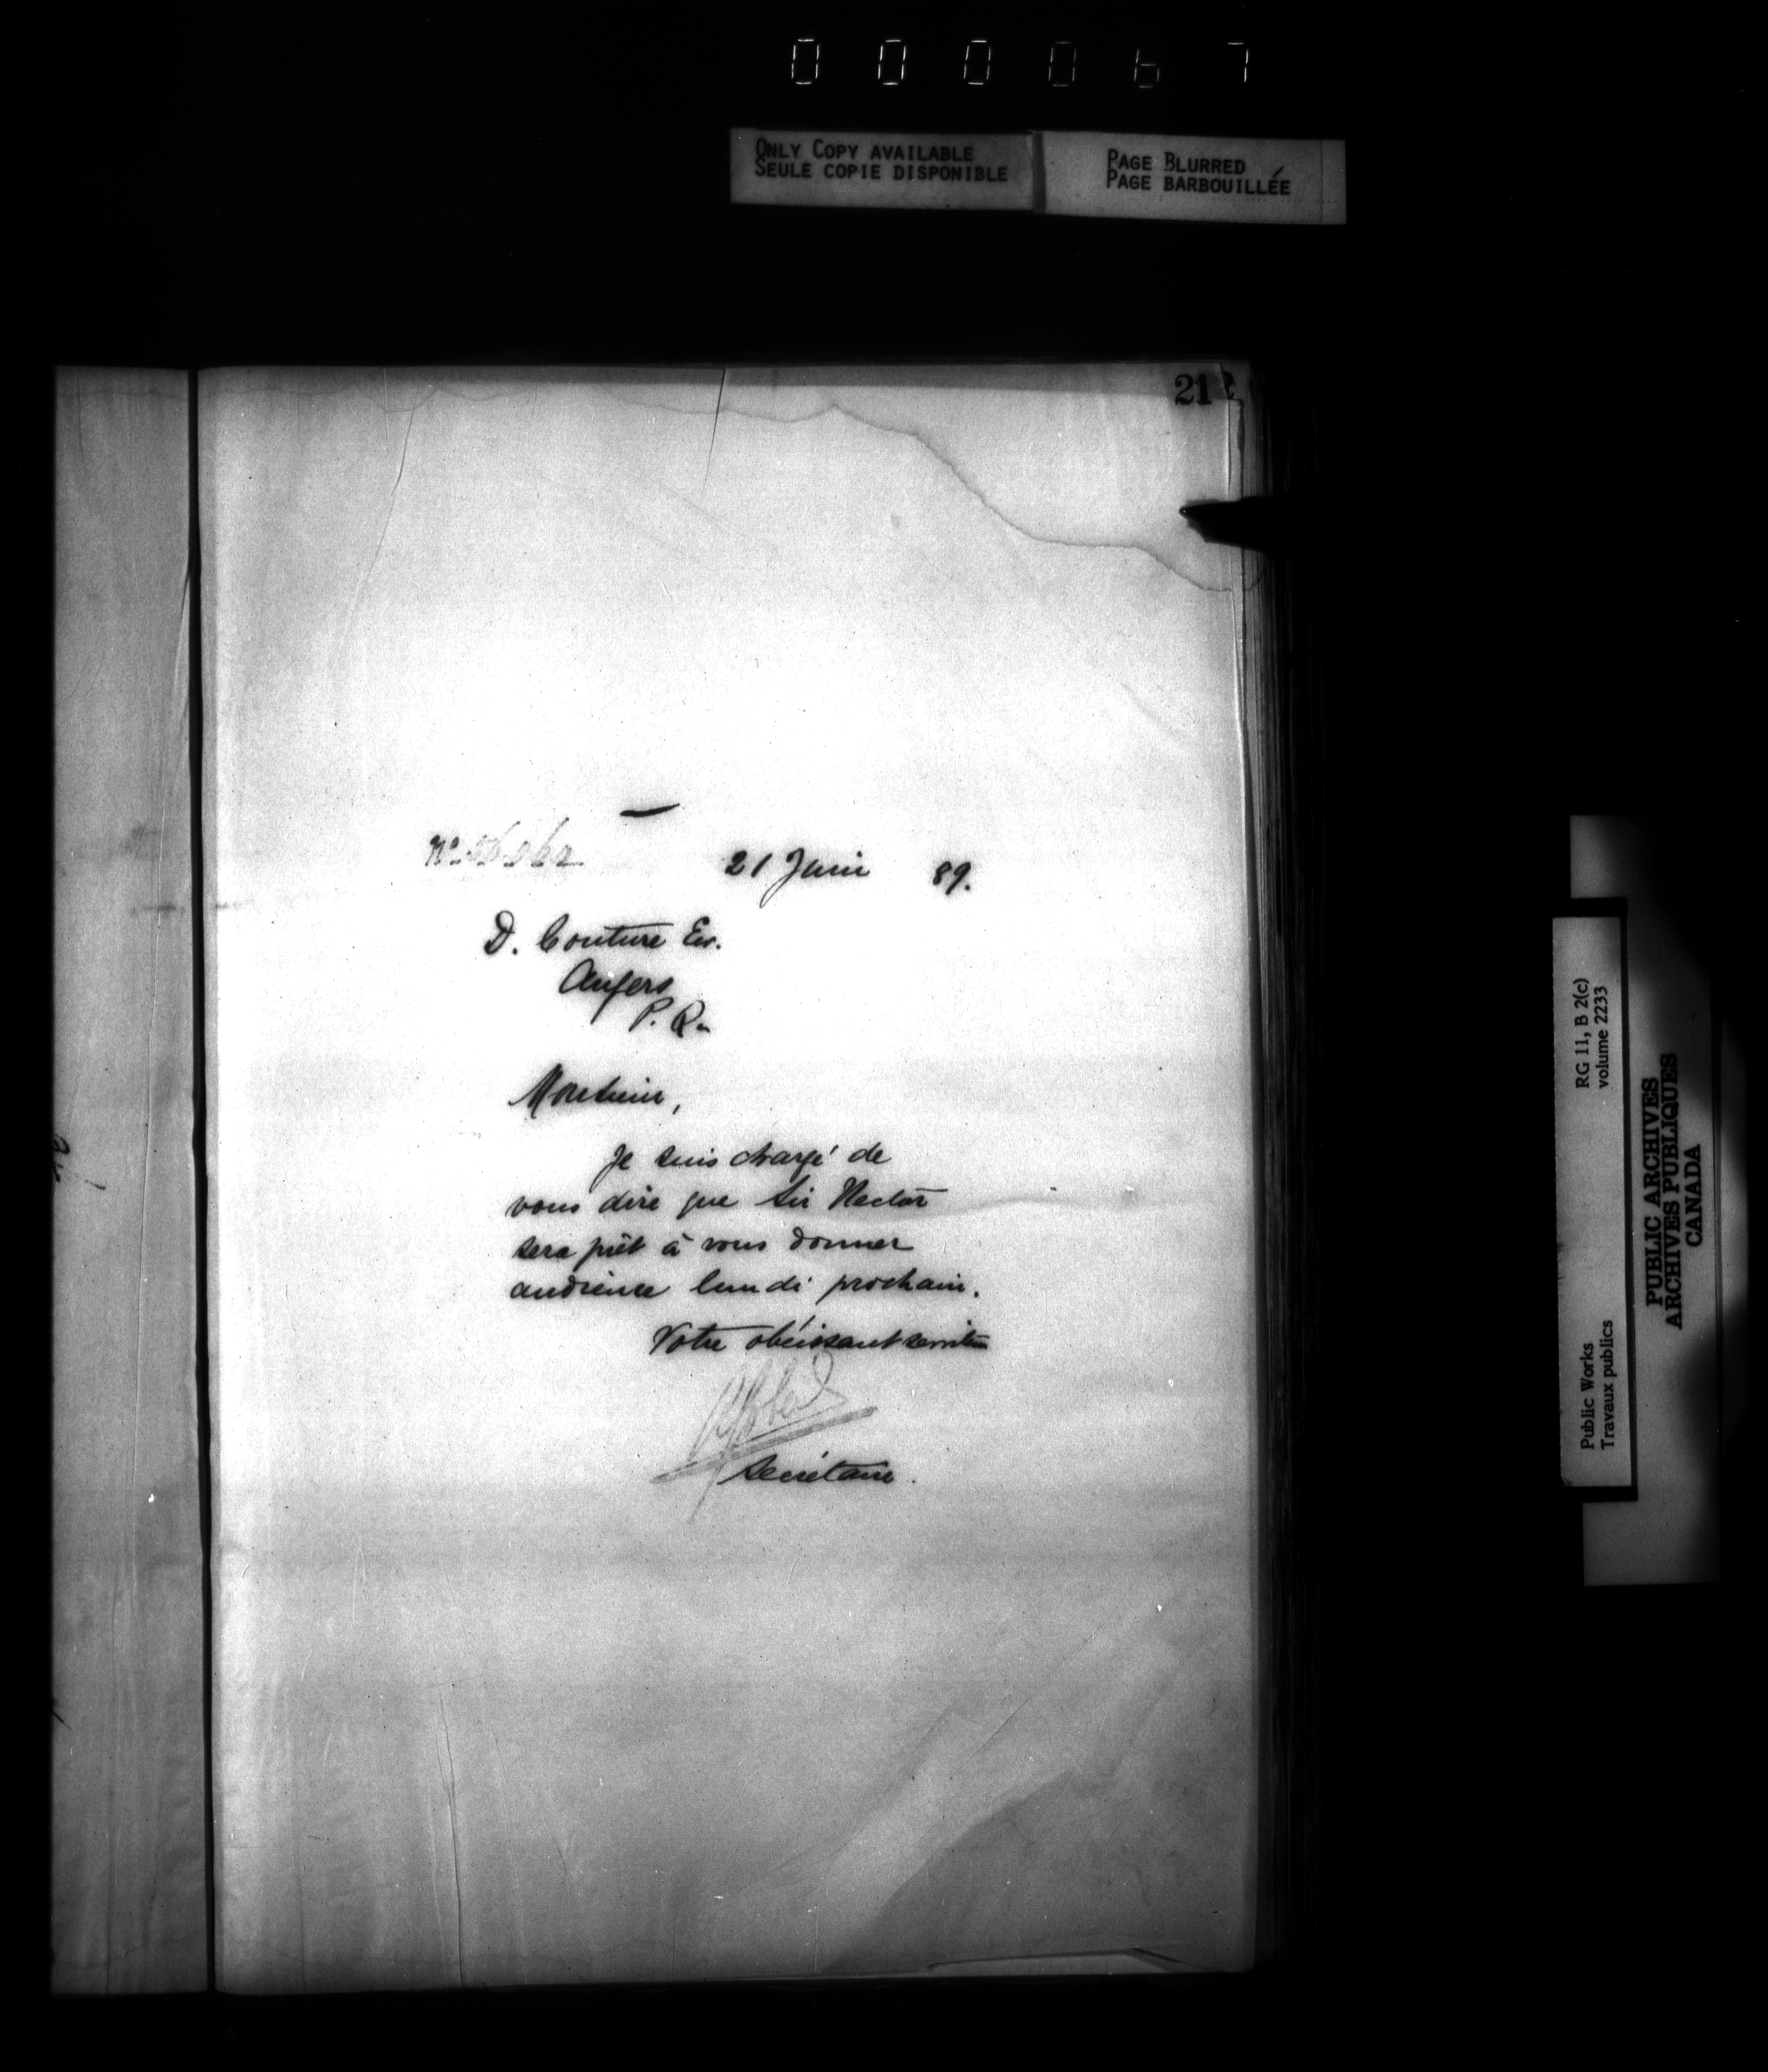 000067
ONLY COPY AVAILABLE
SEULE COPIE DISPONIBLE
PAGE BLURRED
PAGE BARBOUILLÉE
21
No.
21 Juin 89.
D. Couture Ecr.
Angers
P. Q.
Monsieur,
Je suis chargé de
vous dire que Sir Hector
sera prêt à vous donner
audience lundi prochain.
Votre obéissant serviteur
Secrétaire.
RG 11, B 2(c)
volume 2233
Public Works
Travaux publics
PUBLIC ARCHIVES
ARCHIVES PUBLIQUES
CANADA